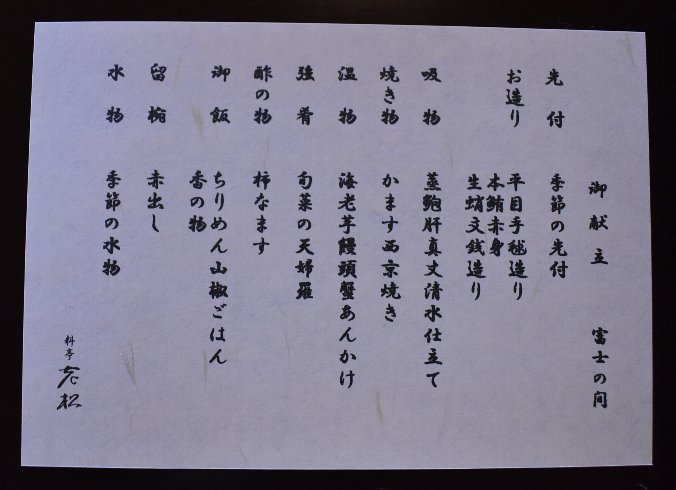 御献立 富士の間
先付 季節の先付
お造り 平目手毬造り
本鮪赤身
生蛸文銭造り
吸物 蒸鮑肝真丈清水仕立て
焼き物 かます西京焼き
温物 海老芋饅頭蟹あんかけ
強肴 旬菜の天婦羅
酢の物 柿なます
御飯 ちりめん山椒ごはん
香の物
留椀 赤出し
水物 季節の水物
料亭 老松